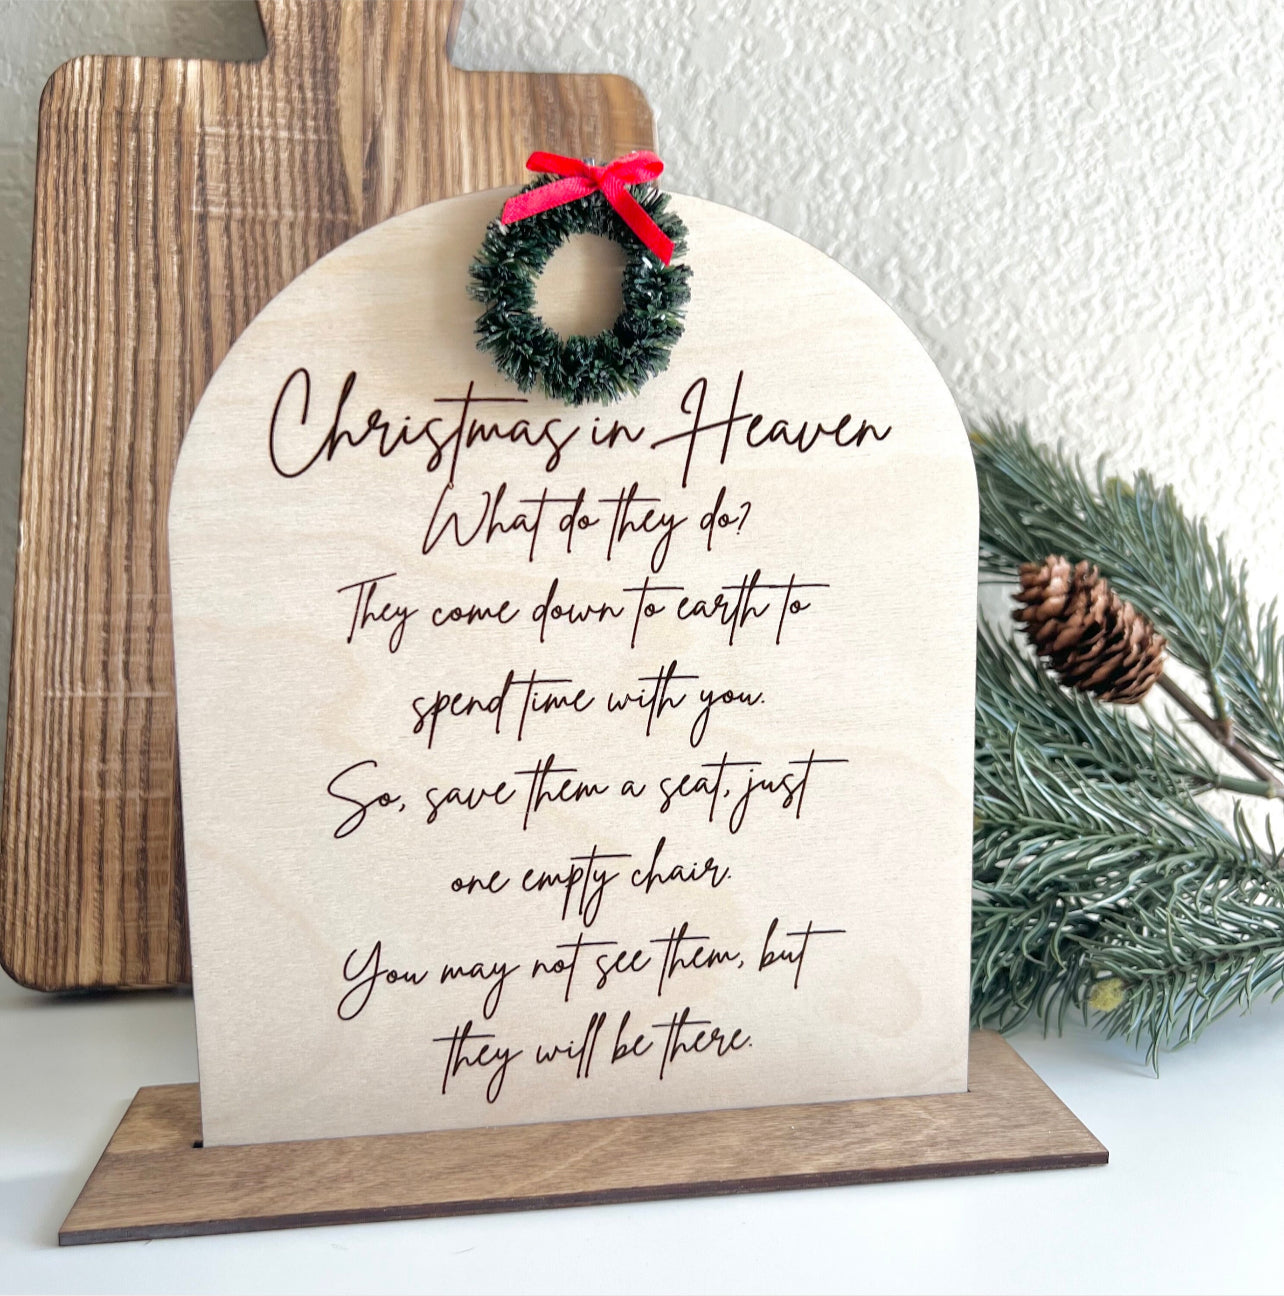 Christmas in Heaven
What do they do?
They come down to earth to
spend time with you.
So, save them a seat, just
one empty chair.
You may not see them, but
they will be there.